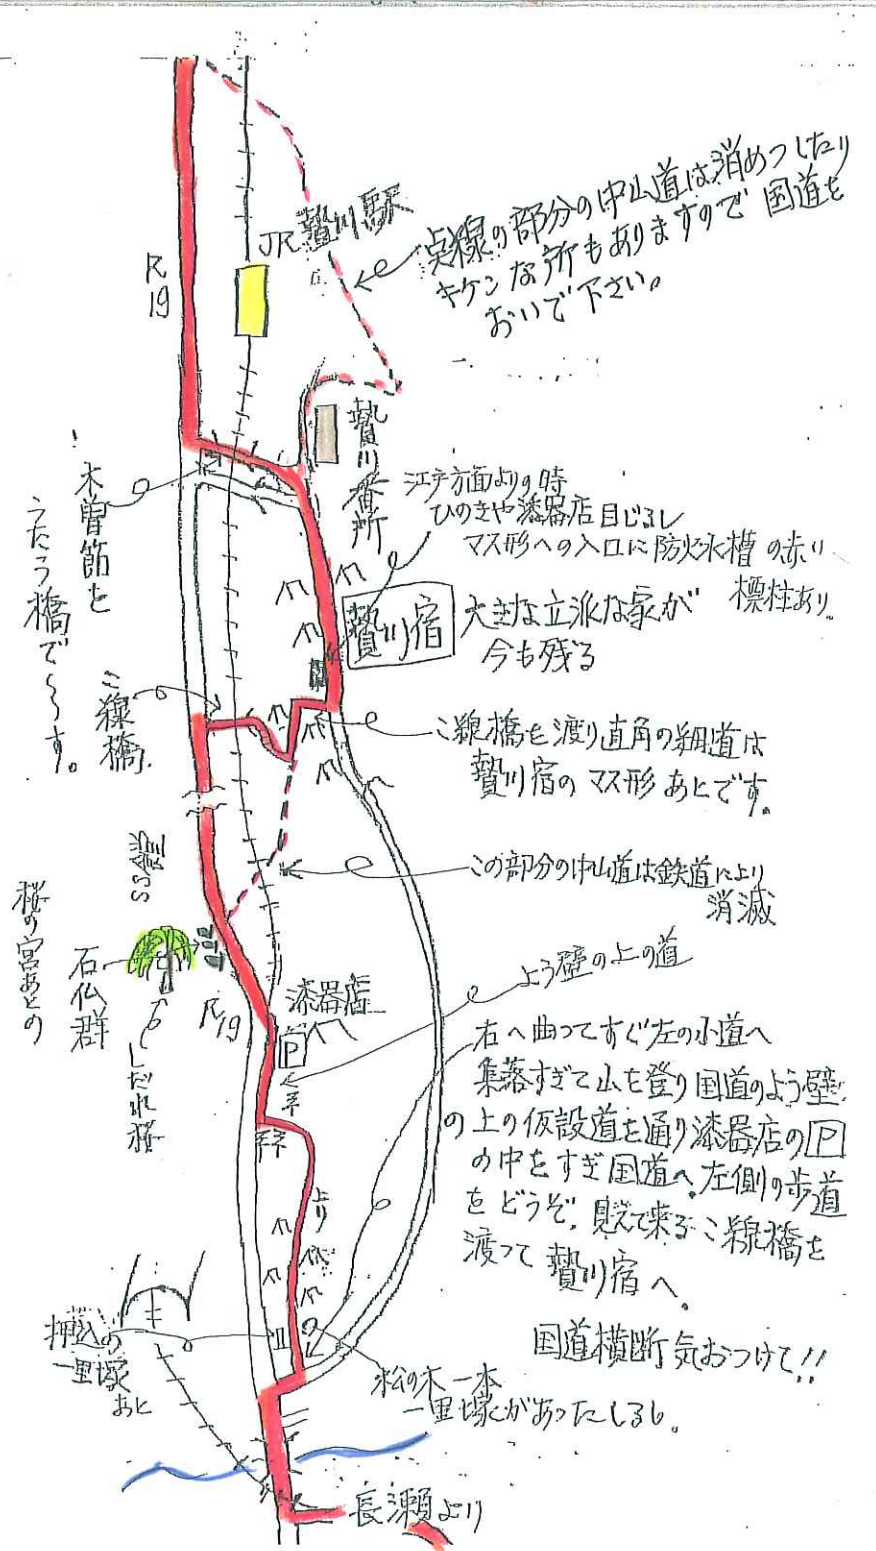 JR贄川駅
点線の部分の中山道は消めつしたり
キケンな所もありますので国道を
おいで下さい。
R19
贄川番所
木曽節を
うたう橋で～す。
江戸方面よりの時
ひのきや漆器店目じるし
マス形への入口に防火水槽の赤い
標柱あり。
贄川宿
大きな立派な家が
今も残る
こ線橋
こ線橋を渡り直角の細道は
贄川宿のマス形あとです。
この部分の中山道は鉄道により
消滅
SS
桜の宮あとの
石仏群
しだれ桜
R19
漆器店
P
よう壁の上の道
右へ曲ってすぐ左の小道へ
集落すぎて山を登り国道のよう壁
の上の仮設道を通り漆器店のP
の中をすぎ国道へ。左側の歩道
をどうぞ。見えて来るこ線橋を
渡って贄川宿へ。
国道横断気おつけて!!
押込の
一里塚
あと
松の木一本
一里塚があったしるし。
長瀬より